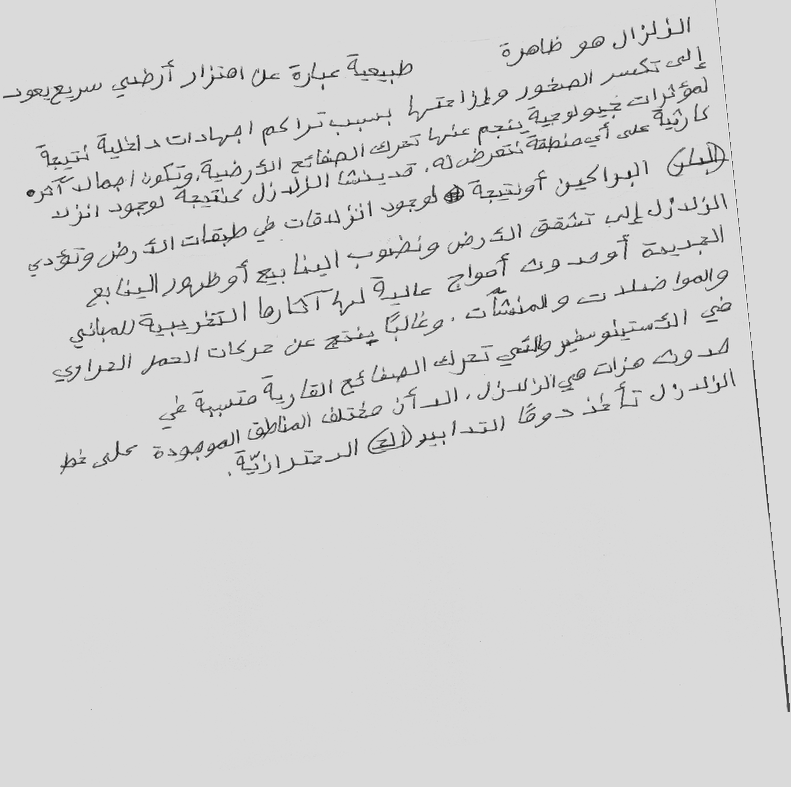 الزلزال هو ظاهرة طبيعية عبارة عن اهتزاز أرضي سريع يعود
إلى تكسر الصخور وإزاحتها بسبب تراكم اجهادات داخلية نتيجة
لمؤثرات جيولوجية ينجم عنها تحرك الصفائح الأرضية، وتكون اجمالا آثر
كارثية على أي منطقة تتعرض له. قد ينشأ الزلازل كنتيجة لوجود انزلا
البراكين أو نتيجة لوجود انزلاقات في طبقات الأرض وتؤدي
الزلازل إلى تشقق الأرض ونضوب الينابيع أو ظهور الينابع
الجديدة أو حدوث أمواج عالية لها آثارها التخريبية للمباني
والمواصلات والمنشآت. وغالبًا ينتج عن حركات الحمل الحراري
في الأستينوسفير والتي تحرك الصفائح القارية متسببة في
حدوث هزات هي الزلازل. الا أن مختلف المناطق الموجودة على خط
الزلازل تأخذ دومًا التدابير الاحترازيّة.